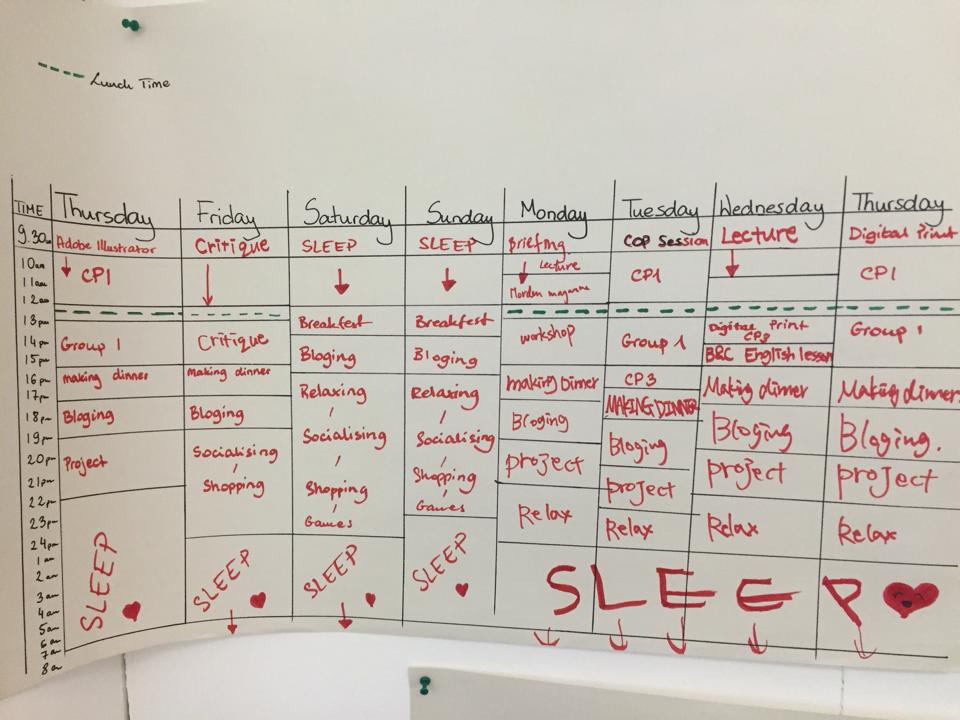 Lunch Time
TIME Thursday Friday Saturday Sunday Monday Tuesday Wednesday Thursday
9.30am Adobe Illustrator Critique SLEEP SLEEP Briefing COP Session Lecture Digital Print
10am Lecture
CP1 CP1 CP1
11am
12am Morden magazine
13pm Breakfest Breakfest workshop Digital Print
CP3
14pm Group 1 Critique Bloging Bloging Group 1 Group 1
15pm BRC English lesson
16pm making dinner making dinner Relaxing Relaxing making Dinner CP3 Making dinner Making dinner
17pm MAKING DINNER
18pm Bloging Bloging Bloging Bloging Bloging.
19pm Socialising Socialising Socialising Bloging
20pm Project project project project
21pm Shopping Shopping Shopping project
22pm Games
23pm Games Relax Relax Relax Relax
24pm
1am
2am SLEEP SLEEP SLEEP SLEEP SLEEP
3am
4am
5am
6am
7am
8am